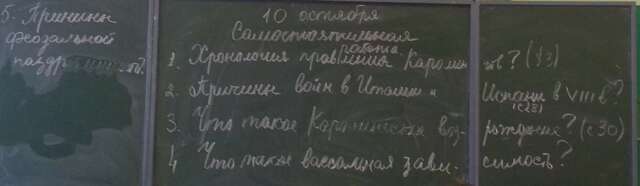 5. Причины
феодальной
раздр
10 октября
Самостоятельная
работа
1. Хронология правления Каролин гов? (§3)
2. Причины войн в Италии и Испании в VIII в?
(с28)
3. Что такое Каролингское воз- рождение? (с 30)
4 Что такое вассальная зави- симость?